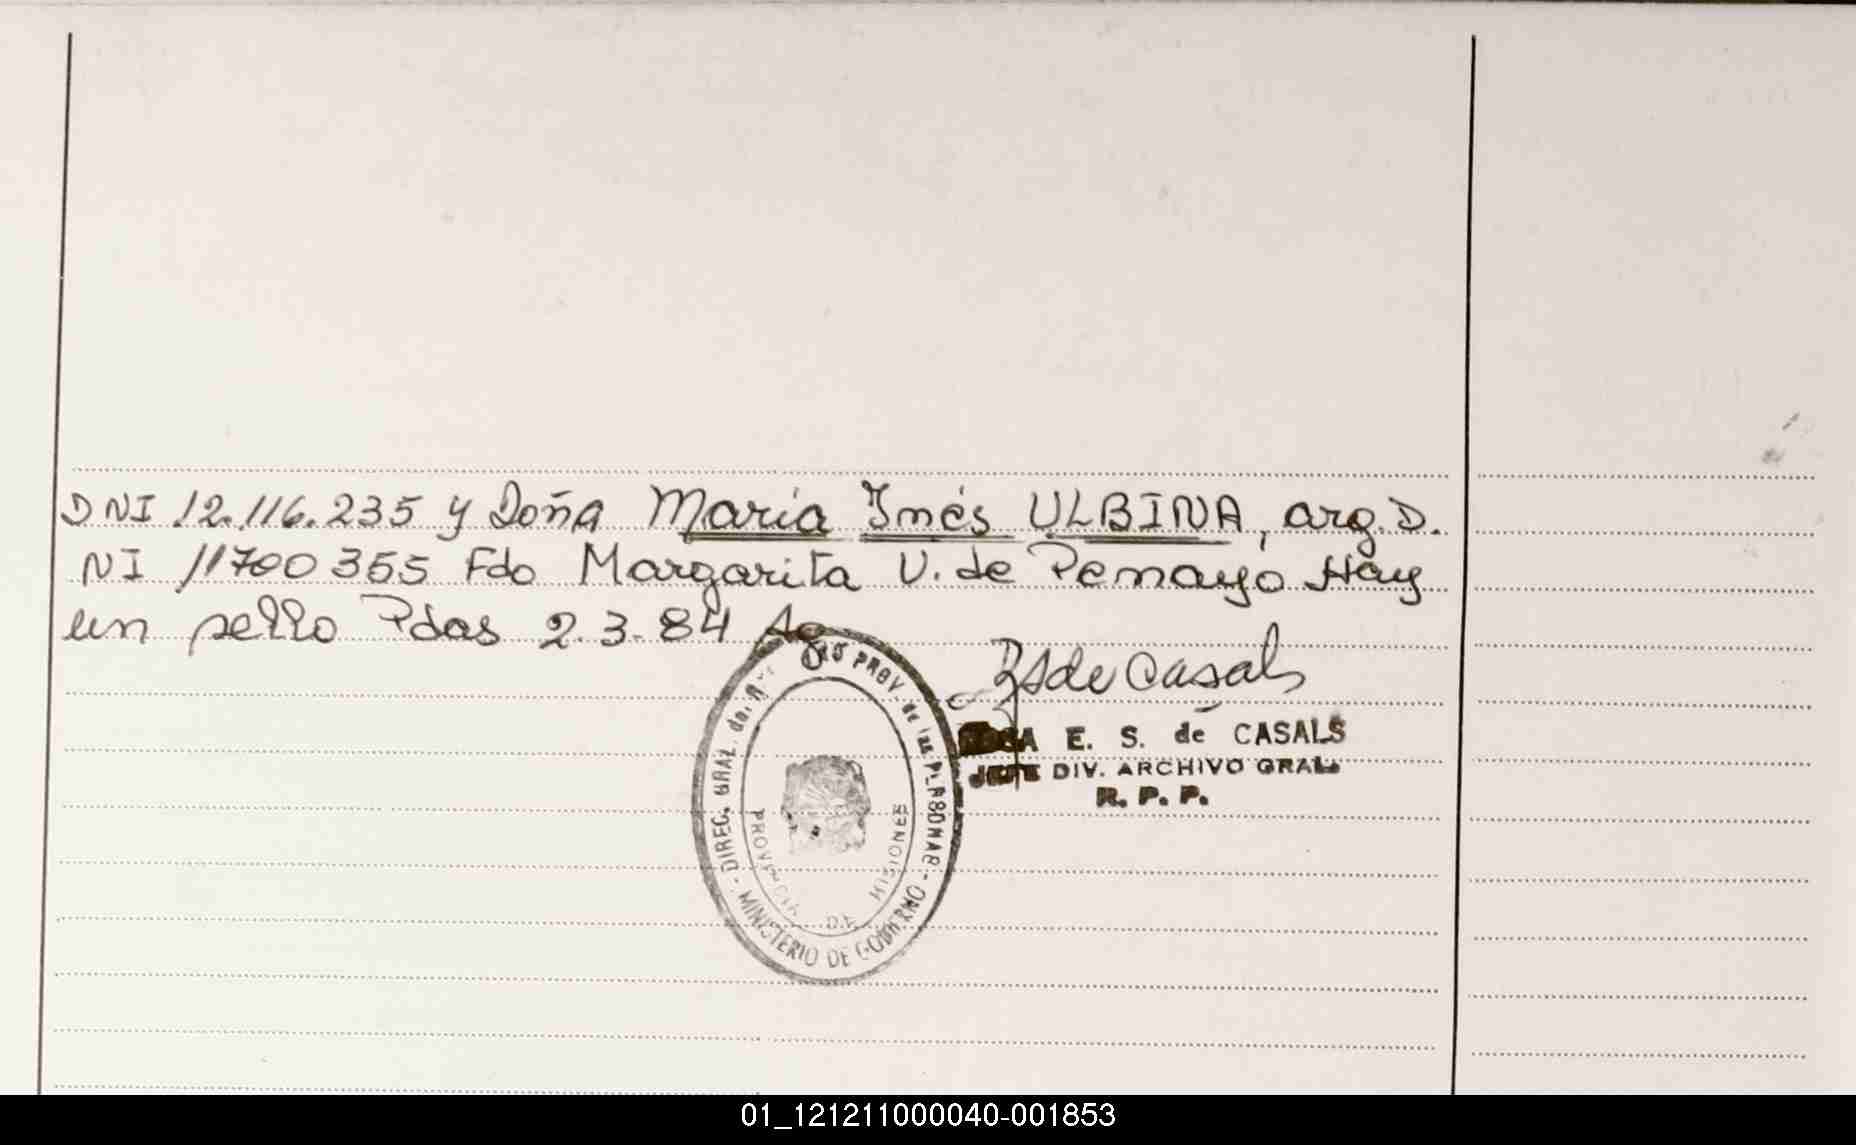 DNI 12.116.235 y Doña María Inés ULBINA, arg. D.
NI 11700355 Fdo Margarita V. de Pemayó Hay
un sello Pdas 2.3.84
RSde Casals
E. S. de CASALS
JEFE DIV. ARCHIVO GRAL.
R. P. P.
DIREC. GRAL. del PROV. de las PERSONAS - MINISTERIO DE GOBIERNO -
PROVINCIA DE MISIONES
01_121211000040-001853